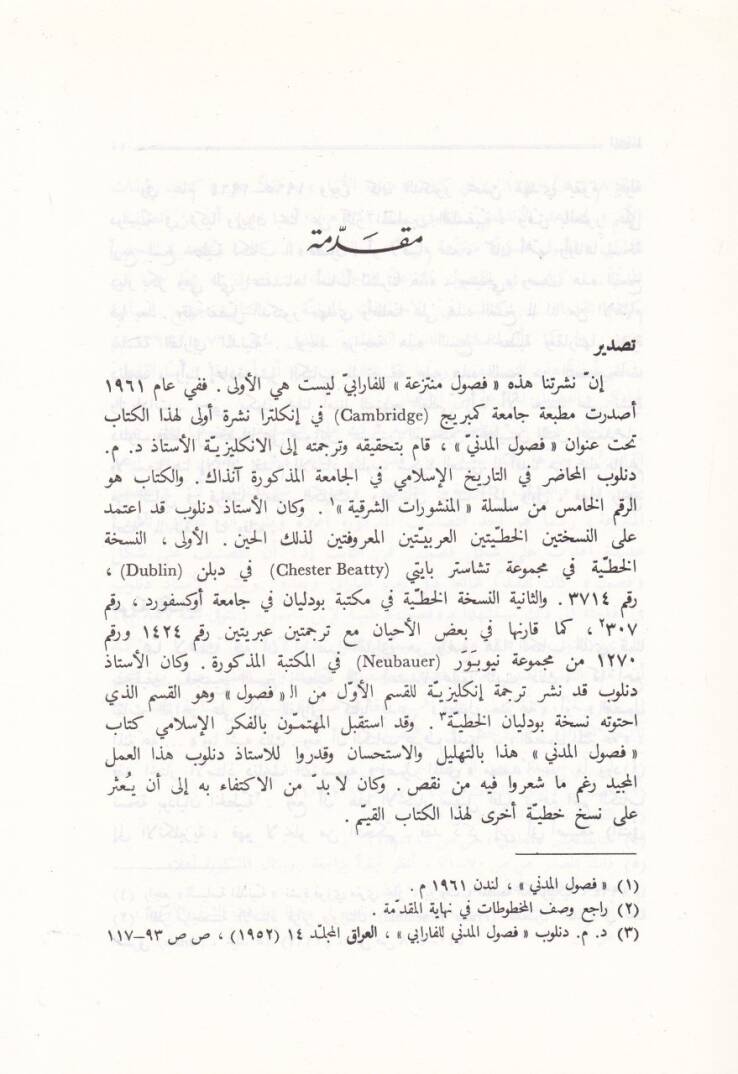 مقدّمة
تصدير
إنّ نشرتنا هذه « فصول منتزعة » للفارابيّ ليست هي الأولى . ففي عام ١٩٦١
أصدرت مطبعة جامعة كمبريج (Cambridge) في إنكلترا نشرة أولى لهذا الكتاب
تحت عنوان « فصول المدنيّ » ، قام بتحقيقه وترجمته إلى الانكليزيّة الأستاذ د. م.
دنلوب المحاضر في التاريخ الإسلامي في الجامعة المذكورة آنذاك. والكتاب هو
الرقم الخامس من سلسلة « المنشورات الشرقية »١ . وكان الأستاذ دنلوب قد اعتمد
على النسختين الخطّيتين العربيّتين المعروفتين لذلك الحين . الأولى ، النسخة
الخطّية في مجموعة تشاستر بايتي (Chester Beatty) في دبلن (Dublin) ،
رقم ٣٧١٤ . والثانية النسخة الخطّية في مكتبة بودليان في جامعة أوكسفورد ، رقم
٣٠٧٢ ، كما قارنها في بعض الأحيان مع ترجمتين عبريتين رقم ١٤٢٤ ورقم
١٢٧٠ من مجموعة نيوبَوَر (Neubauer) في المكتبة المذكورة . وكان الأستاذ
دنلوب قد نشر ترجمة إنكليزية للقسم الأوّل من الـ« فصول » وهو القسم الذي
احتوته نسخة بودليان الخطّية٣ . وقد استقبل المهتمّون بالفكر الإسلامي كتاب
« فصول المدني » هذا بالتهليل والاستحسان وقدروا للاستاذ دنلوب هذا العمل
المجيد رغم ما شعروا فيه من نقص . وكان لا بدّ من الاكتفاء به إلى أن يُعثر
على نسخ خطيّة أخرى لهذا الكتاب القيم .
(١) « فصول المدني » ، لندن ١٩٦١ م .
(٢) راجع وصف المخطوطات في نهاية المقدّمة .
(٣) د. م. دنلوب « فصول المدني للفارابي » ، العراق المجلد ١٤ (١٩٥٢) ، ص ص ٩٣–١١٧